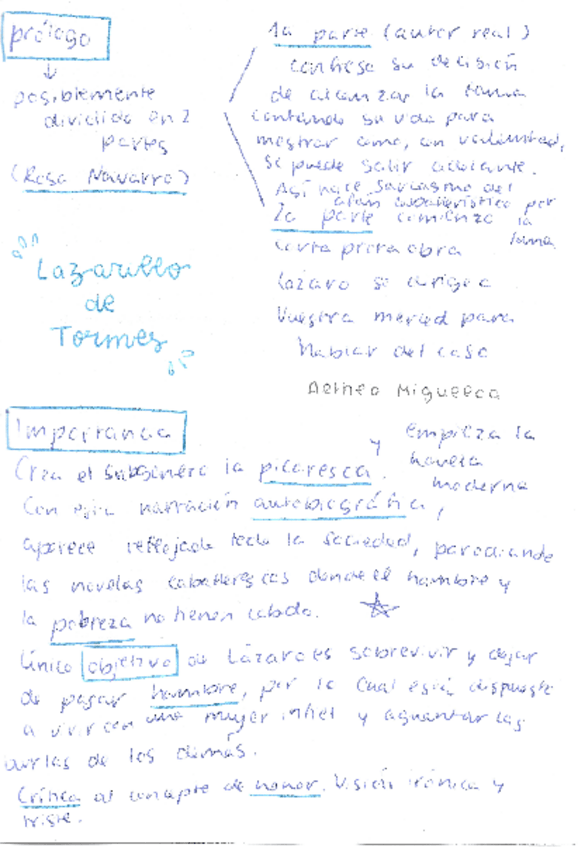 prólogo
posiblemente
dividido en 2
partes
(Rosa Navarro)
1a parte (autor real)
confiesa su decisión
de alcanzar la fama
contando su vida para
mostrar cómo, con voluntad,
se puede salir adelante.
Así hace sarcasmo del
afán caballeresco por
la fama
2a parte comienza
Lázaro se dirige a
Vuestra merced para
hablar del caso
"Lazarillo
de
Tormes"
Importancia
Crea el subgénero la picaresca.
y empieza la
novela
moderna
Con esta narración autobiográfica,
aparece reflejada toda la sociedad, parodiando
las novelas caballerescas donde el hambre y
la pobreza no tienen cabida.
Único objetivo de Lázaro es sobrevivir y dejar
de pasar hambre, por lo cual está dispuesto
a vivir con una mujer infiel y aguantar las
burlas de los demás.
Crítica al concepto de honor. Visión irónica y
triste.